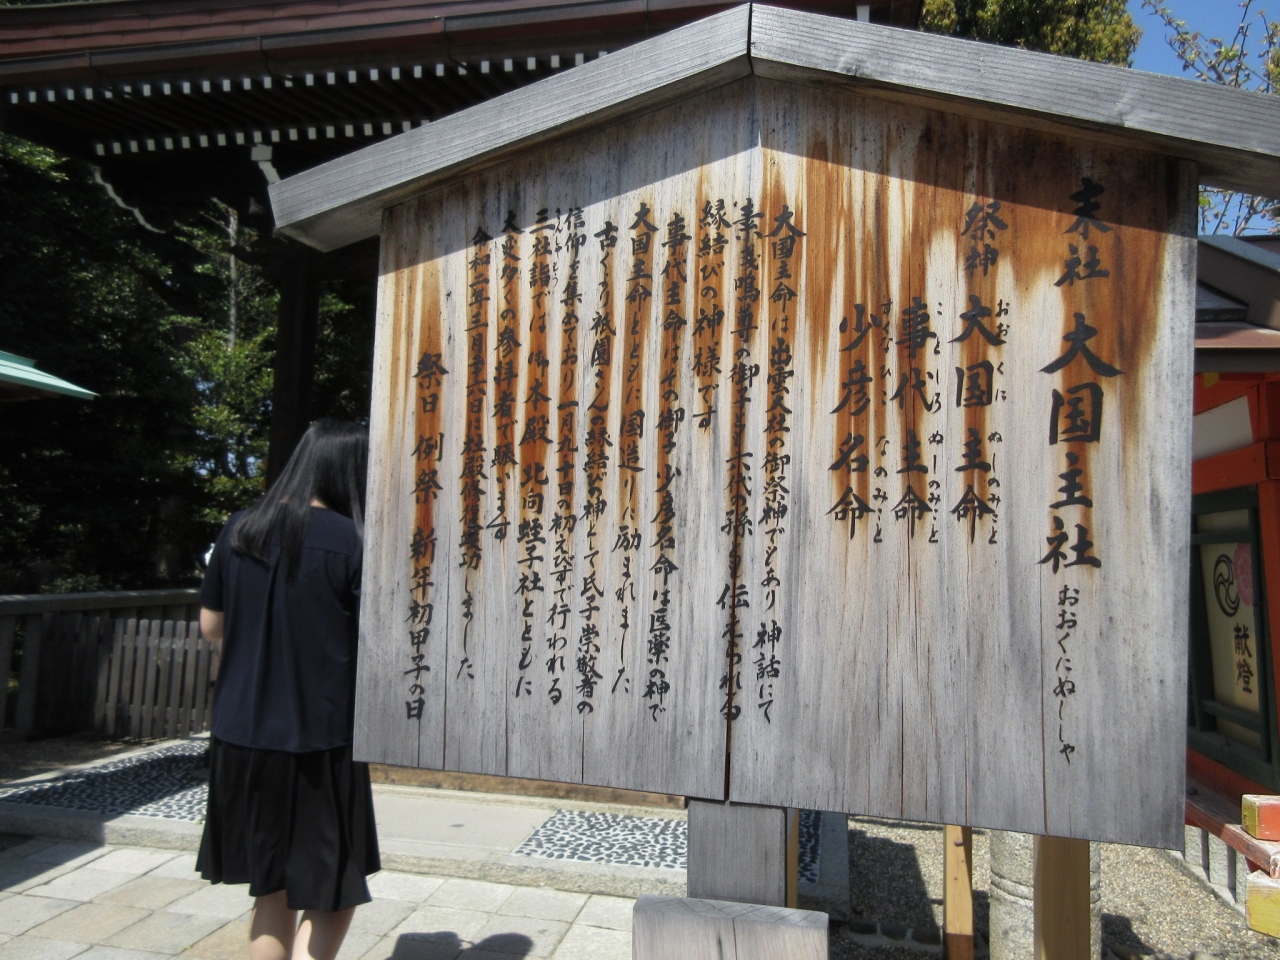 末社 大国主社 おおくにぬししゃ
祭神 大国主命 おおくにぬしのみこと
事代主命 ことしろぬしのみこと
少彦名命 すくなひこなのみこと
大国主命は出雲大社の御祭神でもあり 神話にて
素戔嗚尊の御子とも六代の孫とも伝えられる
縁結びの神様です
事代主命はその御子 少彦名命は医薬の神で
大国主命とともに国造りに励まれました
古くより祇園さんの縁結びの神として氏子崇敬者の
信仰を集めており 一月九 十日の初えびすで行われる
三社詣では 御本殿 北向蛭子社とともに
大変多くの参拝者で賑います
令和二年三月二十六日に社殿修復竣功しました
祭日 例祭 新年初甲子の日
献燈